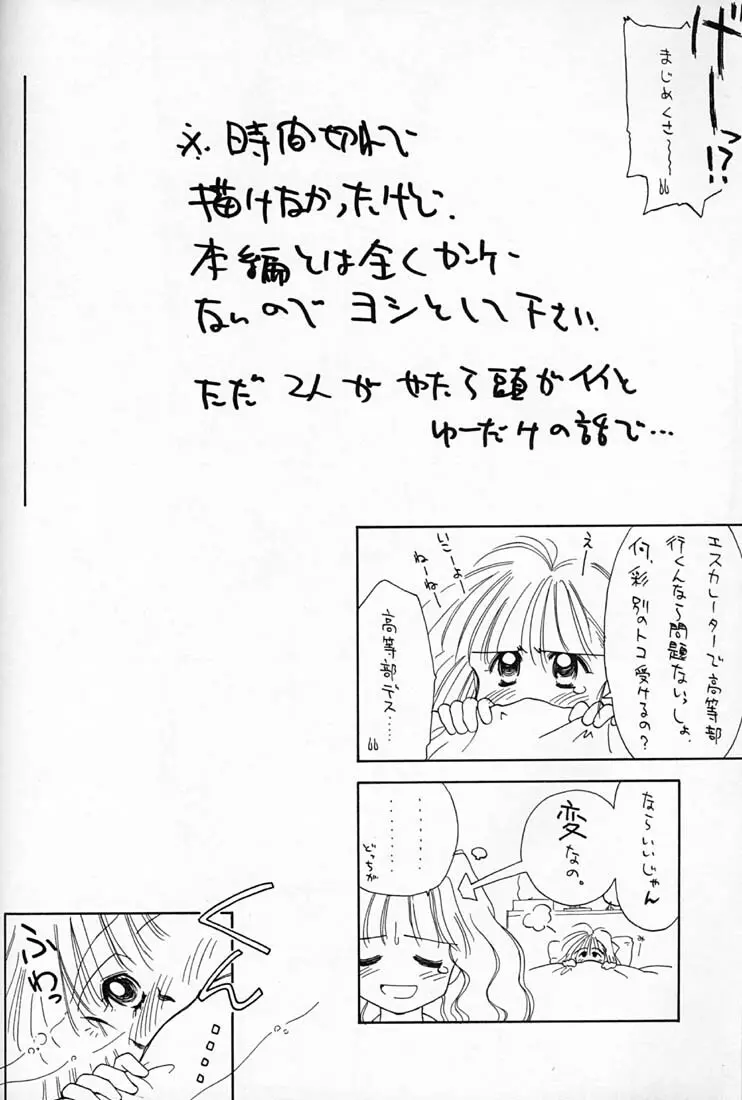 げーっ!?
まじめくさ〜〜
※時間切れで
描けなかったけど、
本編とは全くカンケー
ないので ヨシとして下さい。
ただ 2人が やたら頭がイイと
ゆーだけの話で…
エスカレーターで高等部
行くんなら問題ないっしょ。
何、彩 別のトコ受けるの?
えー
いこーよ
ねーねー
高等部デス……
ならいいじゃん
変なの。
………
………
どっちが
くん
ふわっ